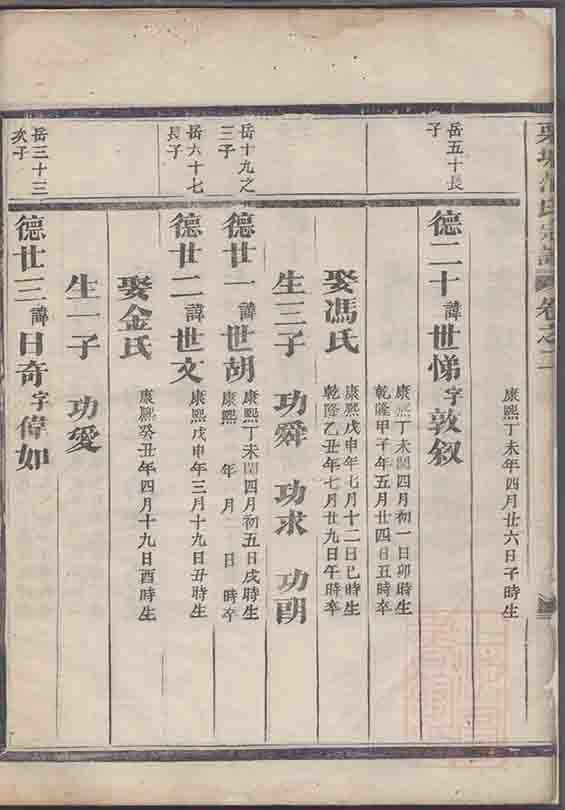 氏宗譜 卷之二
康熙丁未年四月廿六日子時生
岳五十長
子
德二十諱世悌字敦叙
康熙丁未閏四月初一日卯時生
乾隆甲子年五月廿四日丑時卒
娶馮氏
康熙戊申年七月十二日巳時生
乾隆乙丑年七月廿九日午時卒
生三子 功舜 功求 功明
岳十九之
三子
德廿一諱世胡
康熙丁未閏四月初五日戌時生
康熙 年 月 日 時卒
岳六十七
長子
德廿二諱世文
康熙戊申年三月十九日丑時生
娶金氏
康熙癸丑年四月十九日酉時生
生一子 功愛
岳三十三
次子
德廿三諱日奇字偉如